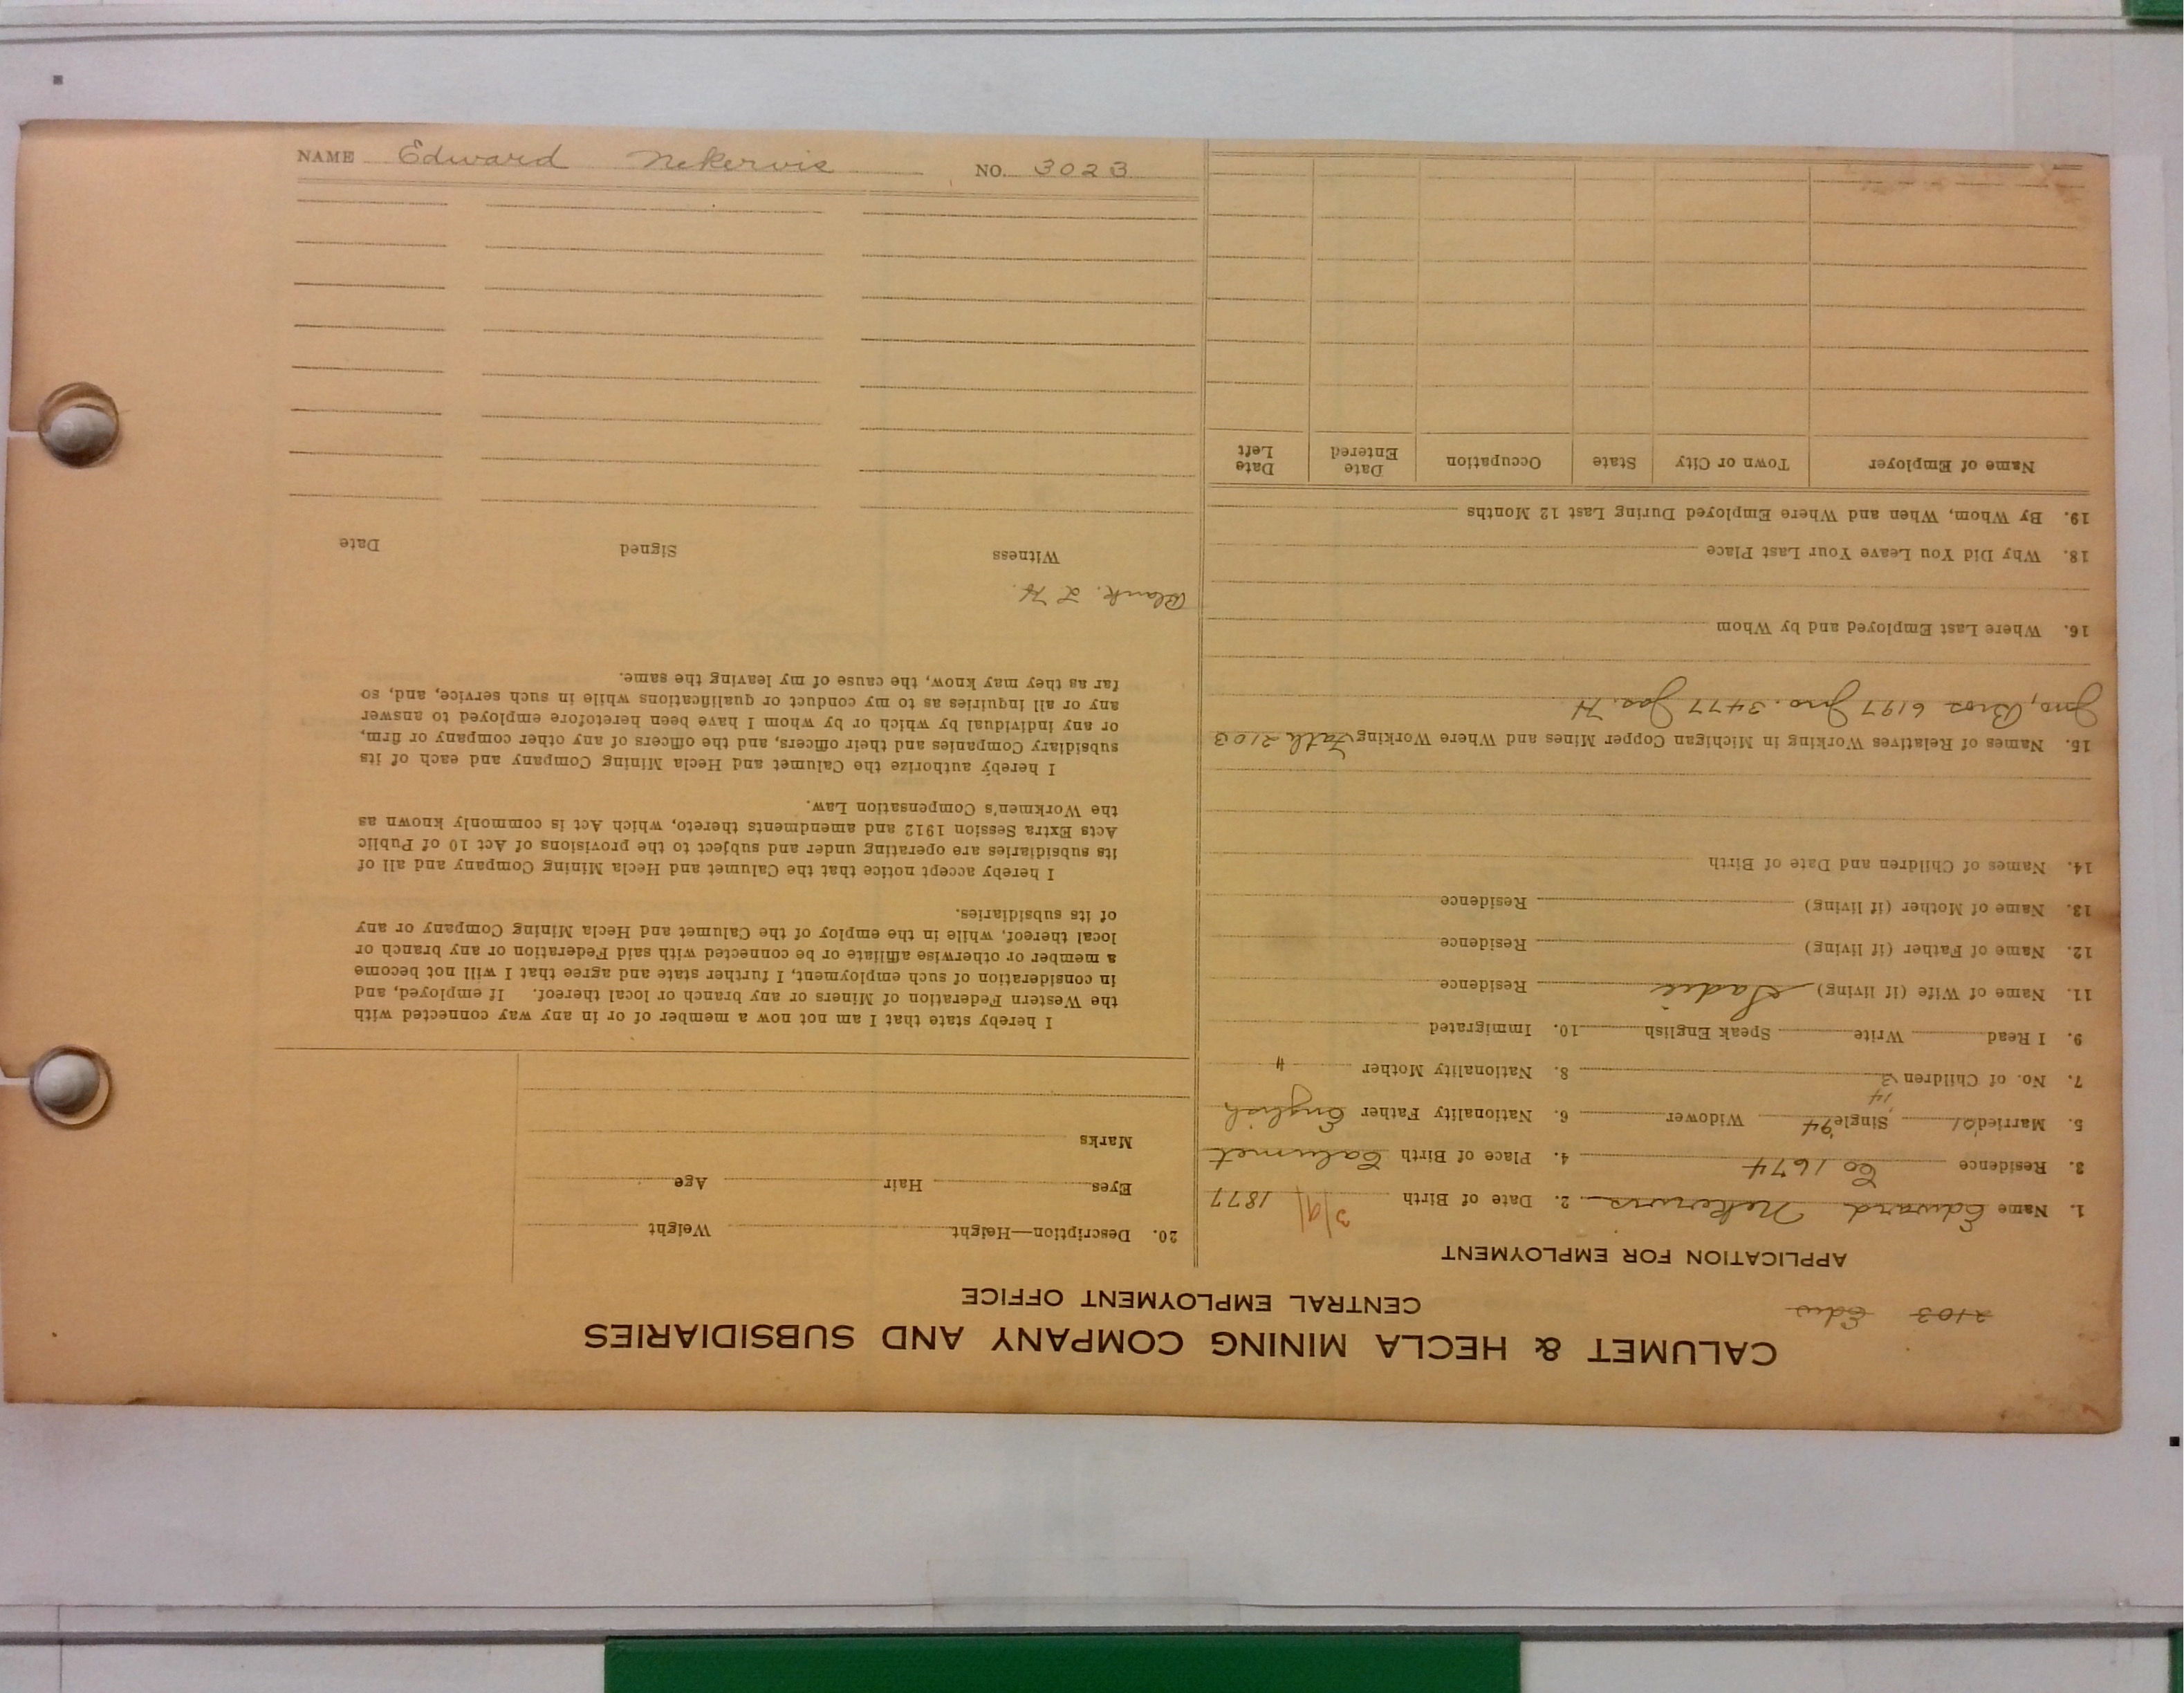 NAME Edward Nekervis NO. 3023
2103 Edw
CALUMET & HECLA MINING COMPANY AND SUBSIDIARIES
CENTRAL EMPLOYMENT OFFICE
APPLICATION FOR EMPLOYMENT
1. Name Edward Nekervis 2. Date of Birth 3/9/ 1877
3. Residence Co 1674 4. Place of Birth Calumet
5. Married '01 Single '94 Widower 6. Nationality Father English
14
7. No. of Children 3 8. Nationality Mother "
9. I Read Write Speak English 10. Immigrated
11. Name of Wife (if living) Sadie Residence
12. Name of Father (if living) Residence
13. Name of Mother (if living) Residence
14. Names of Children and Date of Birth
15. Names of Relatives Working in Michigan Copper Mines and Where Working Fath 2103
Jno, Bros 6197 Jno. 3477 Jas. H
16. Where Last Employed and by Whom
18. Why Did You Leave Your Last Place
19. By Whom, When and Where Employed During Last 12 Months
Name of Employer Town or City State Occupation Date Entered Date Left
20. Description—Height Weight
Eyes Hair Age
Marks
I hereby state that I am not now a member of or in any way connected with
the Western Federation of Miners or any branch or local thereof. If employed, and
in consideration of such employment, I further state and agree that I will not become
a member or otherwise affiliate or be connected with said Federation or any branch or
local thereof, while in the employ of the Calumet and Hecla Mining Company or any
of its subsidiaries.
I hereby accept notice that the Calumet and Hecla Mining Company and all of
its subsidiaries are operating under and subject to the provisions of Act 10 of Public
Acts Extra Session 1912 and amendments thereto, which Act is commonly known as
the Workmen's Compensation Law.
I hereby authorize the Calumet and Hecla Mining Company and each of its
subsidiary Companies and their officers, and the officers of any other company or firm,
or any individual by which or by whom I have been heretofore employed to answer
any or all inquiries as to my conduct or qualifications while in such service, and, so
far as they may know, the cause of my leaving the same.
Blank. L H.
Witness Signed Date